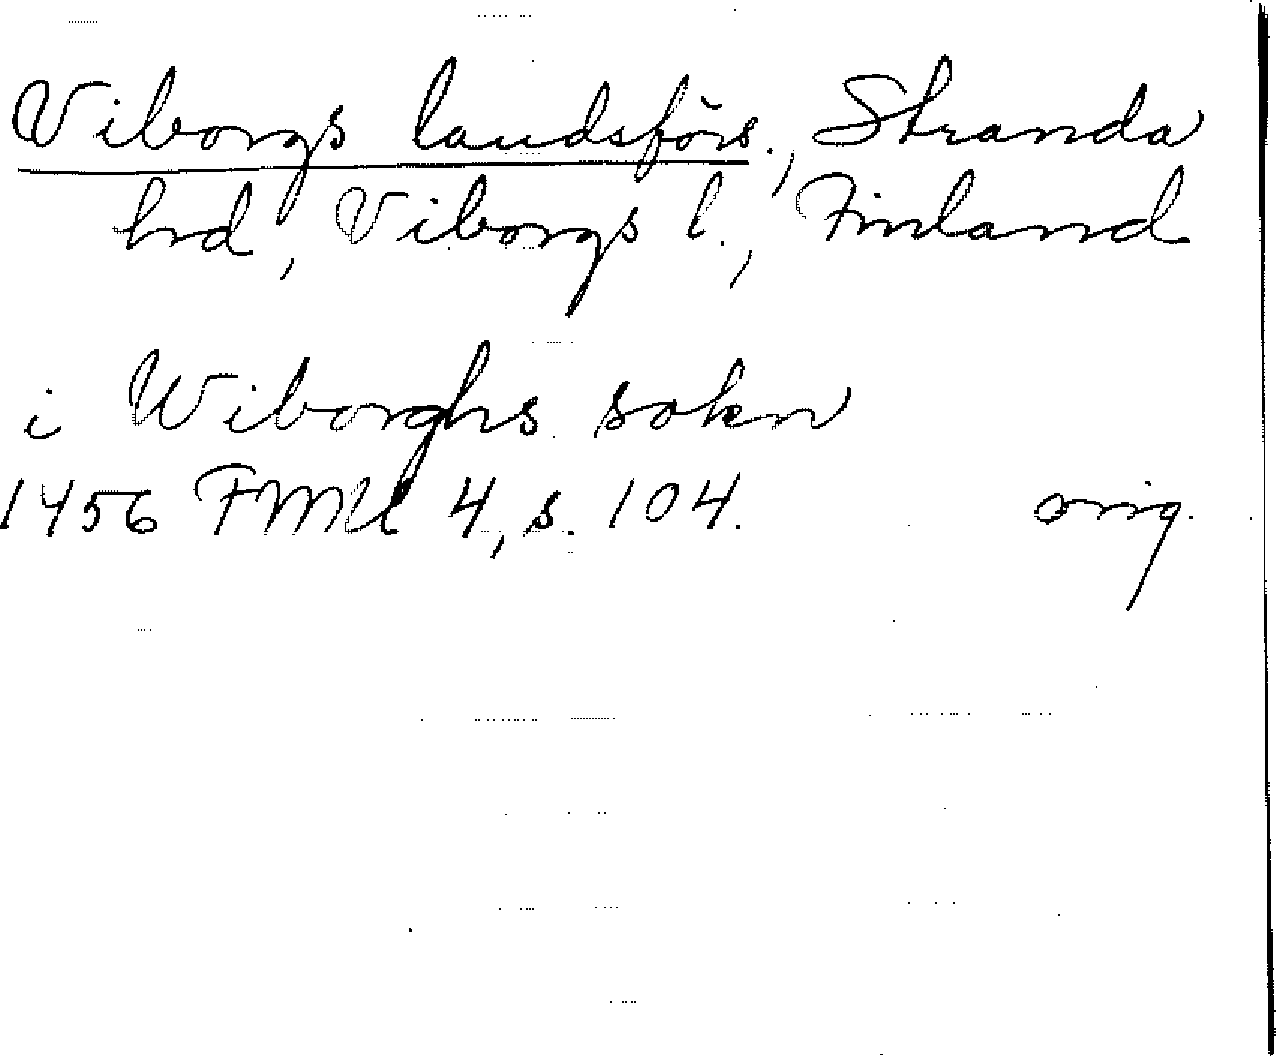 Viborgs landsförs., Stranda
hrd, Viborgs l., Finland
i Wiborghs sokn
1456 FMU 4, s. 104. orig.